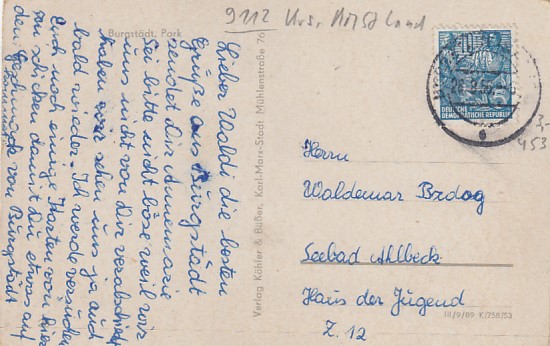 9112 Krs.
Burgstädt, Park
Lieber Waldi die besten
Grüße aus Burgstädt
sendet Dir Annemarie
Sei bitte nicht böse weil wir
uns nicht von Dir verabschiedet
haben wir sehen uns ja auch
bald wieder. Ich werde versuchen
Euch noch einige Karten von hier
zu schicken damit Du etwas auf
den Geschmack von Burgstädt
Verlag Köhler & Büßer, Karl-Marx-Stadt Mühlenstraße 70
10
DEUTSCHE
DEMOKRATISCHE REPUBLIK
5
3,-
453
Herrn
Waldemar Bxdog
Seebad Ahlbeck
Haus der Jugend
Z. 12
III/9/89 K/758/53